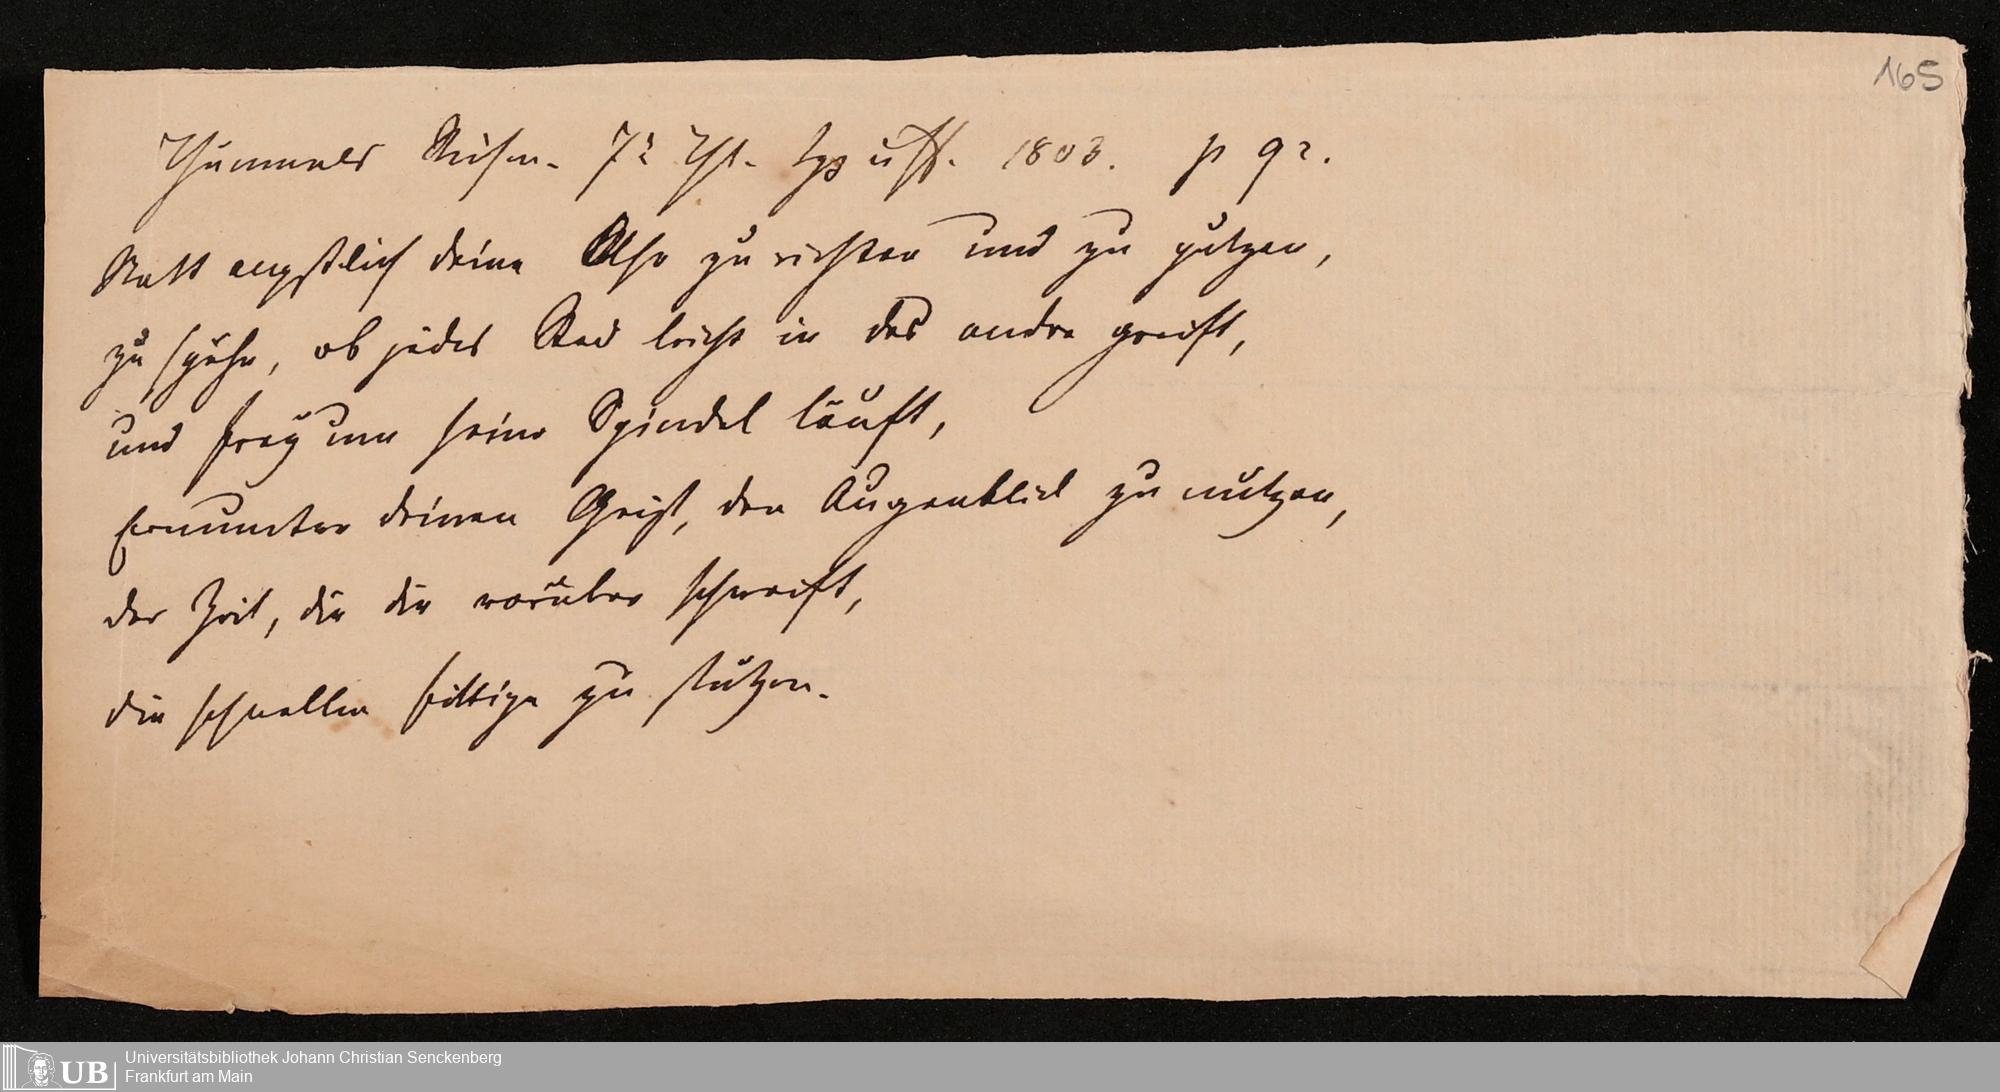 165
Thümmels Reisen. 7r Thl. Lpz 1803. p 92.
Statt ängstlich deine Uhr zu richten und zu putzen,
zu spähn, ob jedes Rad leicht in das andre greift,
und frey um seine Spindel läuft,
Ermuntre deinen Geist, den Augenblick zu nutzen,
der Zeit, die dir vorüber schweift,
die schnellen fittige zu stutzen.
UB
Universitätsbibliothek Johann Christian Senckenberg
Frankfurt am Main